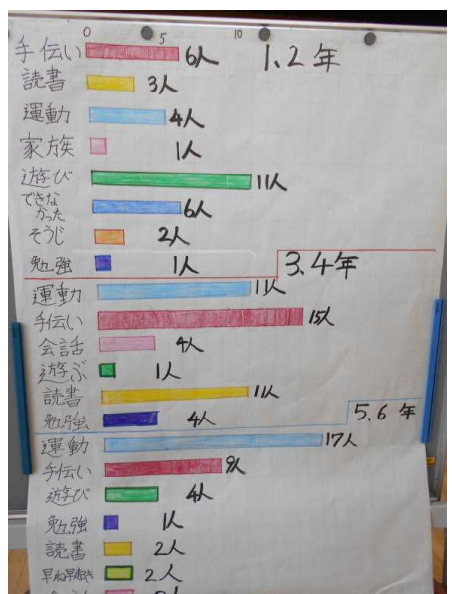 0 5 10
手伝い 6人 1.2年
読書 3人
運動 4人
家族 1人
遊び 11人
できなかった 6人
そうじ 2人
勉強 1人
3.4年
運動 11人
手伝い 15人
会話 4人
遊ぶ 1人
読書 11人
勉強 4人
5.6年
運動 17人
手伝い 9人
遊び 4人
勉強 1人
読書 2人
早ね早起き 2人